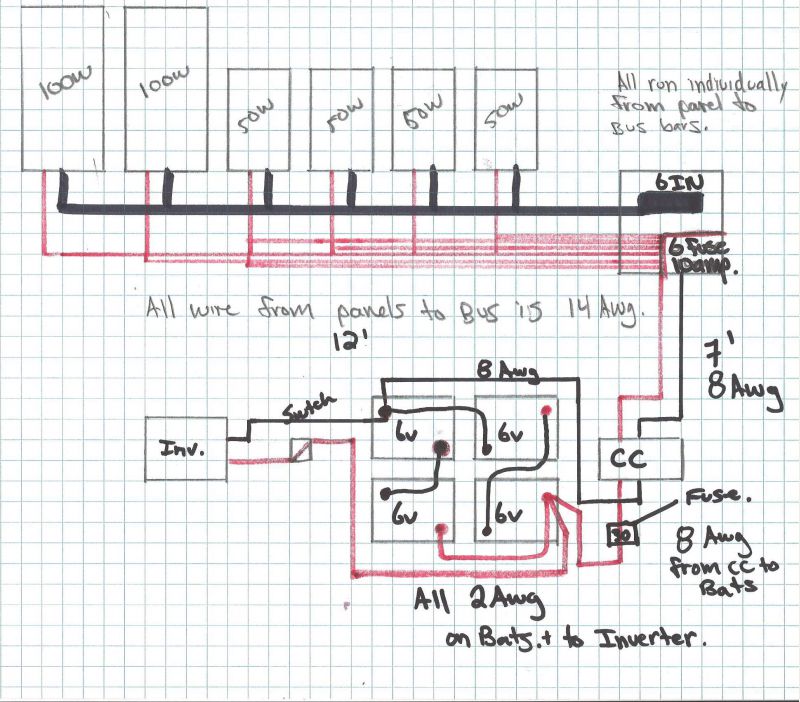 100W
100W
50W
50W
50W
50W
All run individually
from panel to
Bus bars.
6 IN
6 Fuse
10amp.
All wire from panels to Bus is 14 Awg.
12'
7'
8 Awg
8 Awg
Switch
Inv.
6v
6v
6v
6v
CC
Fuse.
30
8 Awg
from CC to
Bats
All 2 Awg
on Bats. + to Inverter.